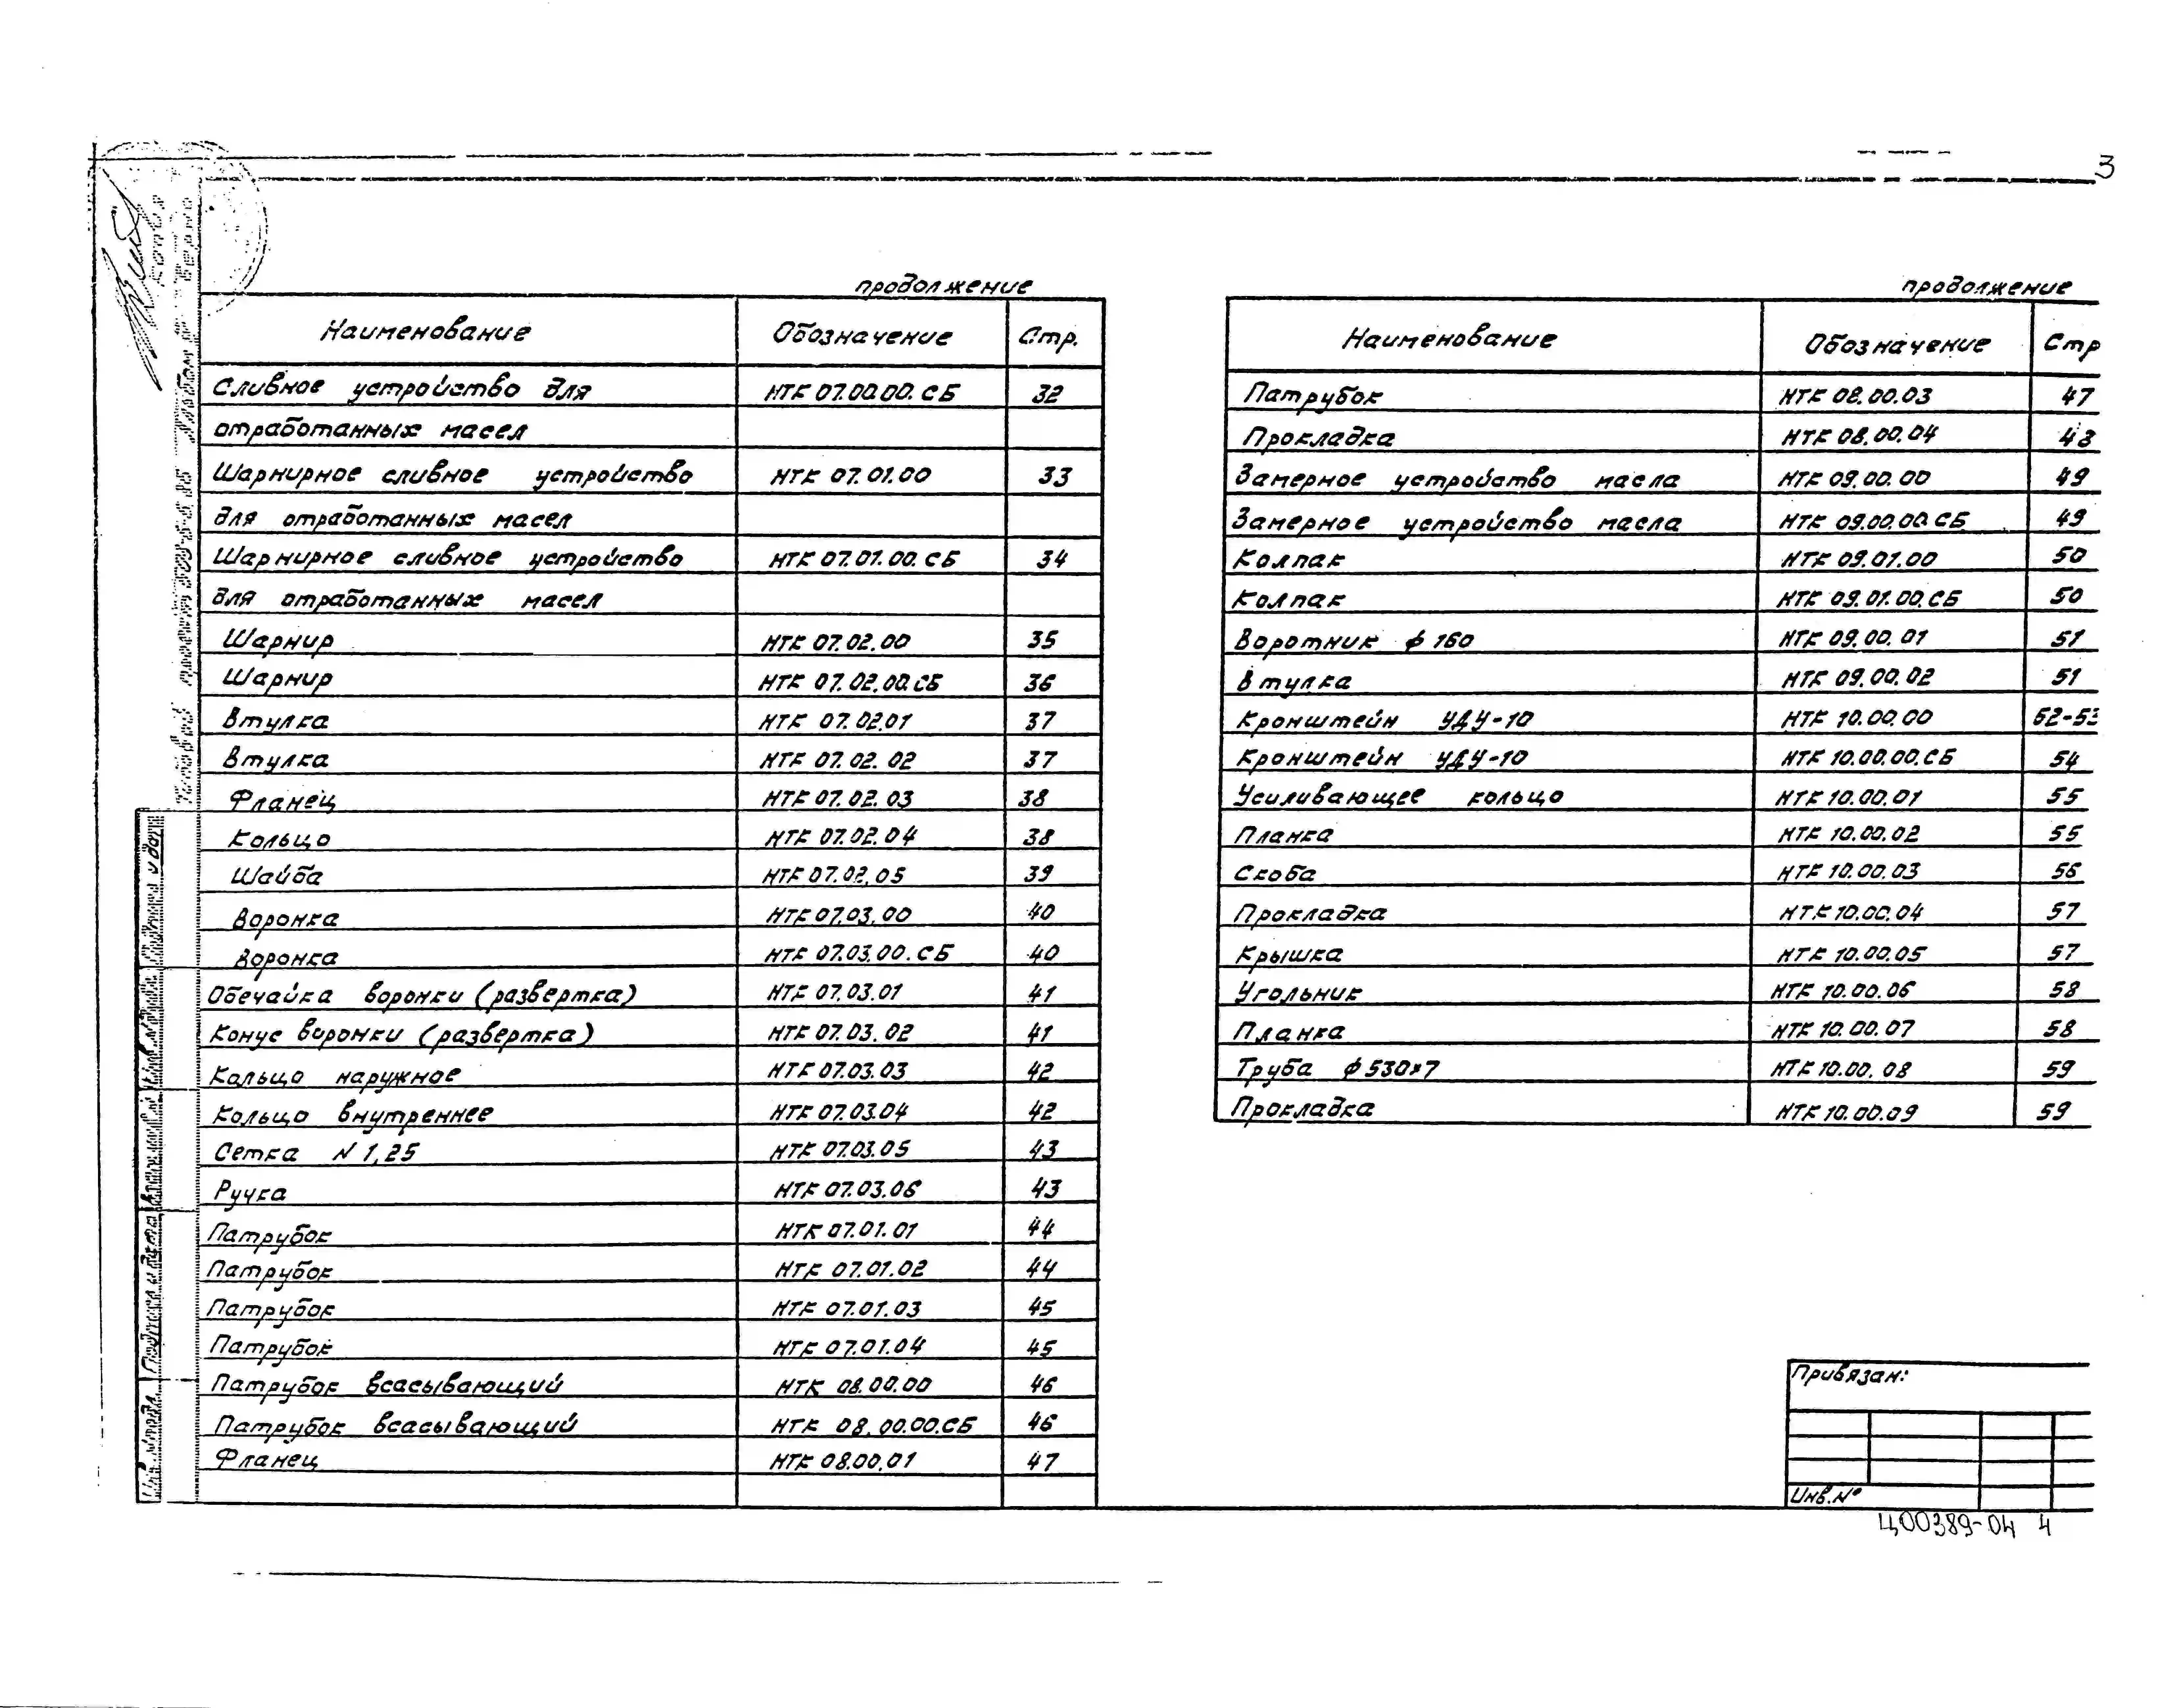 3
продолжение
Наименование Обозначение Стр.
Сливное устройство для НТК 07.00.00.СБ 32
отработанных масел
Шарнирное сливное устройство НТК 07.01.00 33
для отработанных масел
Шарнирное сливное устройство НТК 07.01.00.СБ 34
для отработанных масел
Шарнир НТК 07.02.00 35
Шарнир НТК 07.02.00.СБ 36
Втулка НТК 07.02.01 37
Втулка НТК 07.02.02 37
Фланец НТК 07.02.03 38
Кольцо НТК 07.02.04 38
Шайба НТК 07.02.05 39
Воронка НТК 07.03.00 40
Воронка НТК 07.03.00.СБ 40
Обечайка воронки (развертка) НТК 07.03.01 41
Конус воронки (развертка) НТК 07.03.02 41
Кольцо наружное НТК 07.03.03 42
Кольцо внутреннее НТК 07.03.04 42
Сетка N 1,25 НТК 07.03.05 43
Ручка НТК 07.03.06 43
Патрубок НТК 07.01.01 44
Патрубок НТК 07.01.02 44
Патрубок НТК 07.01.03 45
Патрубок НТК 07.01.04 45
Патрубок всасывающий НТК 08.00.00 46
Патрубок всасывающий НТК 08.00.00.СБ 46
Фланец НТК 08.00.01 47
продолжение
Наименование Обозначение Стр
Патрубок НТК 08.00.03 47
Прокладка НТК 08.00.04 48
Замерное устройство масла НТК 09.00.00 49
Замерное устройство масла НТК 09.00.00.СБ 49
Колпак НТК 09.01.00 50
Колпак НТК 09.01.00.СБ 50
Воротник ф 160 НТК 09.00.01 51
Втулка НТК 09.00.02 51
Кронштейн УДУ-10 НТК 10.00.00 52-53
Кронштейн УДУ-10 НТК 10.00.00.СБ 54
Усиливающее кольцо НТК 10.00.01 55
Планка НТК 10.00.02 55
Скоба НТК 10.00.03 56
Прокладка НТК 10.00.04 57
Крышка НТК 10.00.05 57
Угольник НТК 10.00.06 58
Планка НТК 10.00.07 58
Труба ф 530×7 НТК 10.00.08 59
Прокладка НТК 10.00.09 59
Привязан:
Инв.№
Ц00389-04 4